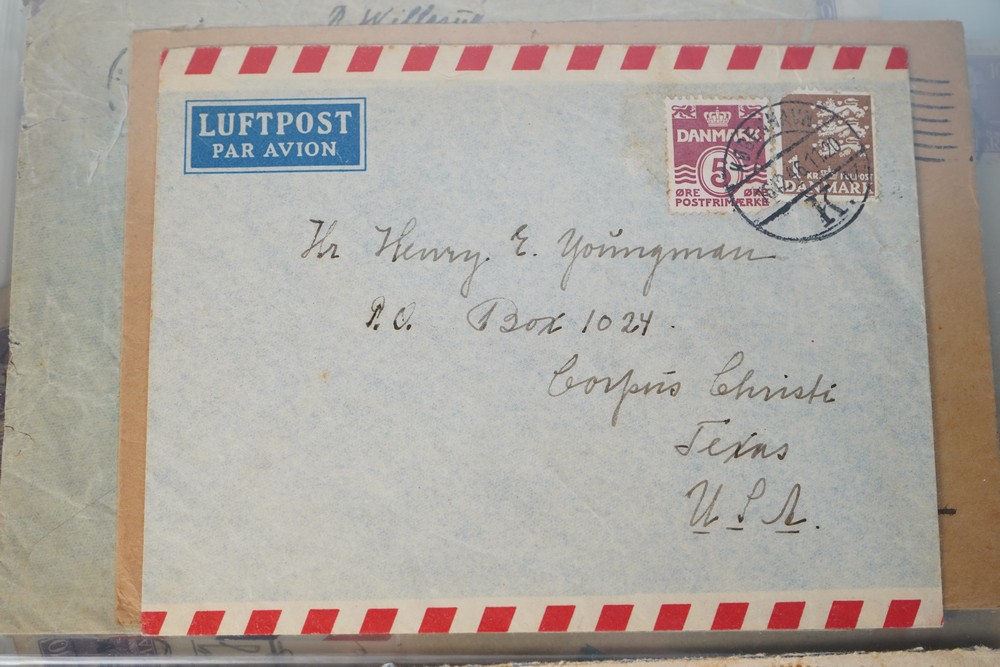 LUFTPOST
PAR AVION
DANMARK
5
ØRE ØRE
POSTFRIMÆRKE
1
DANMARK
KØBENHAVN
K.
Hr Henry. E. Youngman
P.O. Box 1024.
Corpus Christi
Texas
U.S.A.